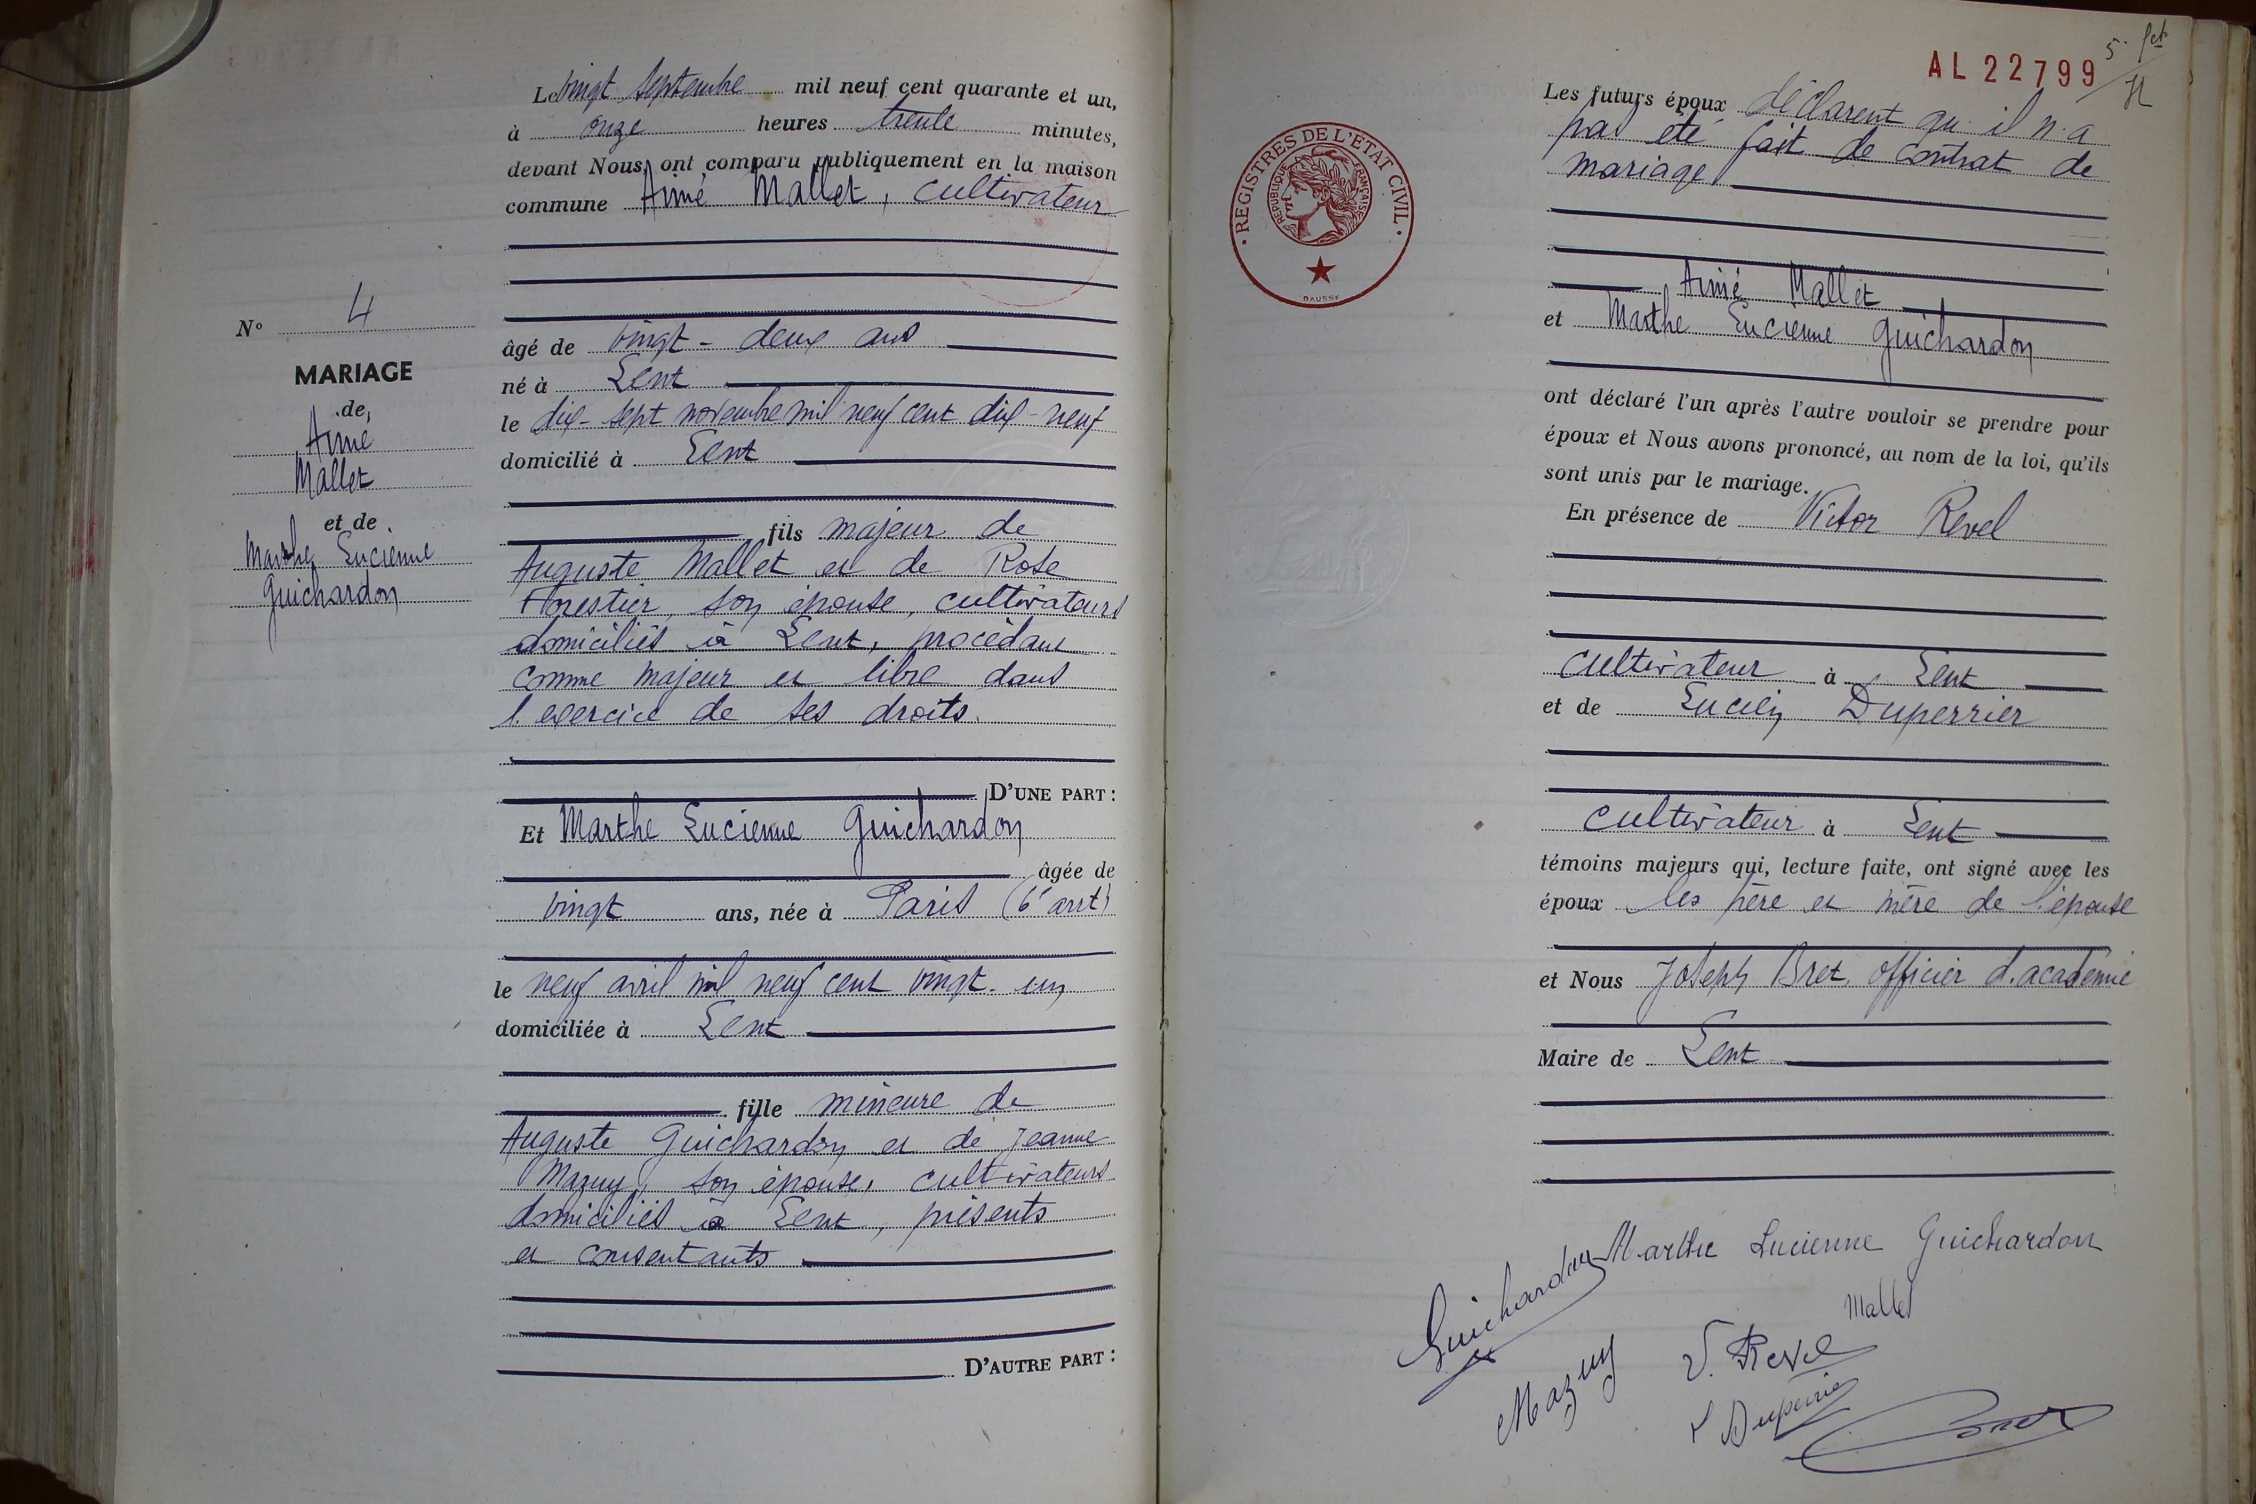 Le vingt septembre mil neuf cent quarante et un,
à onze heures trente minutes,
devant Nous, ont comparu publiquement en la maison
commune Aimé Mallet, cultivateur
N° 4
MARIAGE
de
Aimé
Mallet
et de
Marthe Lucienne
Guichardon
âgé de vingt-deux ans
né à Lent
le dix-sept novembre mil neuf cent dix-neuf
domicilié à Lent
fils majeur de
Auguste Mallet et de Rose
Forestier, son épouse, cultivateurs
domiciliés à Lent, procédant
comme majeur et libre dans
l'exercice de ses droits.
D'UNE PART :
Et Marthe Lucienne Guichardon
âgée de
vingt ans, née à Paris (6e arrt)
le neuf avril mil neuf cent vingt-un
domiciliée à Lent
fille mineure de
Auguste Guichardon et de Jeanne
Mazuy, son épouse, cultivateurs
domiciliés à Lent, présents
et consentants
D'AUTRE PART :
AL 22799
REGISTRES DE L'ETAT CIVIL
REPUBLIQUE FRANÇAISE
DAUSSY
Les futurs époux déclarent qu'il n'a
pas été fait de contrat de
mariage
Aimé Mallet
et Marthe Lucienne Guichardon
ont déclaré l'un après l'autre vouloir se prendre pour
époux et Nous avons prononcé, au nom de la loi, qu'ils
sont unis par le mariage.
En présence de Victor Revel
cultivateur à Lent
et de Lucien Duperrier
cultivateur à Lent
témoins majeurs qui, lecture faite, ont signé avec les
époux les père et mère de l'épouse
et Nous Joseph Bret, officier d'académie
Maire de Lent
Guichardon Marthe Lucienne Guichardon
Mallet
Mazuy V. Revel
L Duperrier
Bret